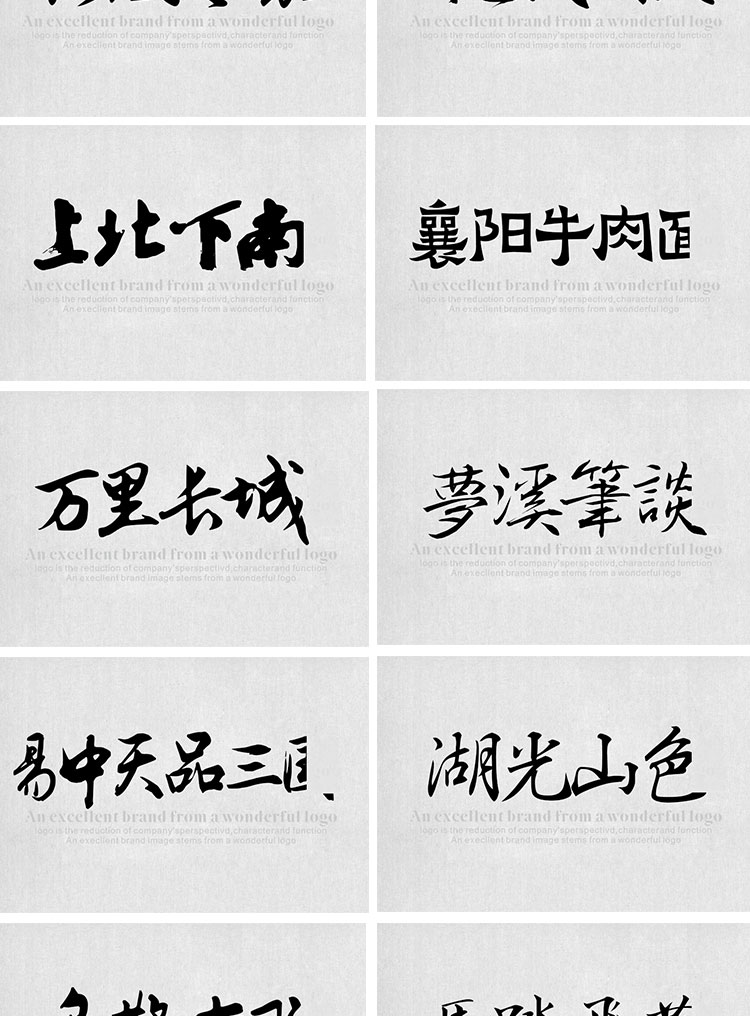 An excellent brand from a wonderful logo
logo is the reduction of company'sperspectivd,characterand function
An execllent brand image stems from a wonderful logo
An excellent brand from a wonderful logo
logo is the reduction of company'sperspectivd,characterand function
An execllent brand image stems from a wonderful logo
上北下南
An excellent brand from a wonderful logo
logo is the reduction of company'sperspectivd,characterand function
An execllent brand image stems from a wonderful logo
襄阳牛肉面
An excellent brand from a wonderful logo
logo is the reduction of company'sperspectivd,characterand function
An execllent brand image stems from a wonderful logo
万里长城
An excellent brand from a wonderful logo
logo is the reduction of company'sperspectivd,characterand function
An execllent brand image stems from a wonderful logo
夢溪筆談
An excellent brand from a wonderful logo
logo is the reduction of company'sperspectivd,characterand function
An execllent brand image stems from a wonderful logo
易中天品三国
An excellent brand from a wonderful logo
logo is the reduction of company'sperspectivd,characterand function
An execllent brand image stems from a wonderful logo
湖光山色
An excellent brand from a wonderful logo
logo is the reduction of company'sperspectivd,characterand function
An execllent brand image stems from a wonderful logo